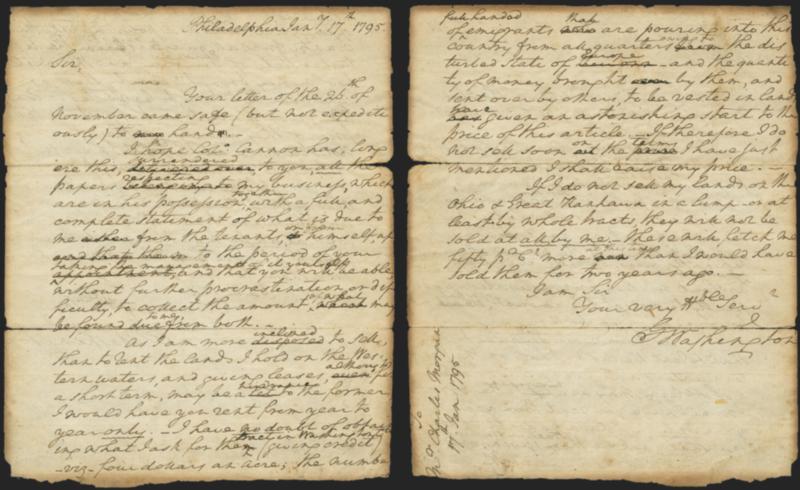 Philadelphia Jany. 17th 1795
Sir,
Your letter of the 26th. of
November came safe (but not expediti
ously) to my hand.
I hope Colo. Cannon has, long
surrendered
ere this, delivered over to you all the
respecting
papers belonging to my business, which
are in his possession, together with a full, and
complete statement of what is due to
or from
me either from the tenants, himself, up
to the period of your
taking the management of it
and that you will be able
without further procrastination or dif
ficulty, to collect the amount, of what may
to me,
be found due from both.
inclined
As I am more disposed to sell,
than to rent the lands I hold on the Wes-
although
tern waters, and giving leases, even for
a short term, may be a hindrance to the former
I would have you rent from year to
year only. I have no doubt of obtain
tract in Washington Cty
ing what I ask for the (giving credit)
viz four dollars an acre; the number
full handed
that
of emigrants who are pouring into this
owing to
country from all quarters from the dis
Europe
turbed State of and the quanti
ty of money brought over by them, and
sent over by others, to be vested in land
have
has given an astonishing start to the
price of this article. If therefore I do
on terms
not sell soon at the price I have just
mentioned I shall raise my price.
If I do not sell my lands on the
Ohio & Great Kanhawa in a lump or at
least by whole tracts, they will not be
sold at all by me. These will fetch me
fifty pr. Ct. more than I would have
sold them for two years ago.
I am Sir
Your very Hble Servt
G Washington
To
Mr. Charles Morgan
17th Jan 1795